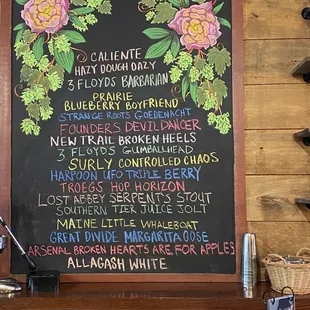 CALIENTE
HAZY DOUGH DAZY
3 FLOYDS BARBARIAN
PRAIRIE
BLUEBERRY BOYFRIEND
STRANGE ROOTS GOEDENACHT
FOUNDERS DEVIL DANCER
NEW TRAIL BROKEN HEELS
3 FLOYDS GUMBALLHEAD
SURLY CONTROLLED CHAOS
HARPOON UFO TRIPLE BERRY
TROEGS HOP HORIZON
LOST ABBEY SERPENT'S STOUT
SOUTHERN TIER JUICE JOLT
MAINE LITTLE WHALEBOAT
GREAT DIVIDE MARGARITA GOSE
ARSENAL BROKEN HEARTS ARE FOR APPLES
ALLAGASH WHITE